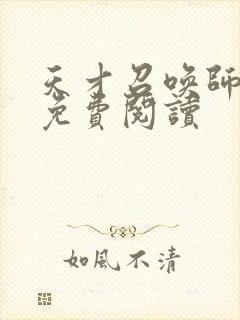 天才召喚師
免費閱讀
如風不清